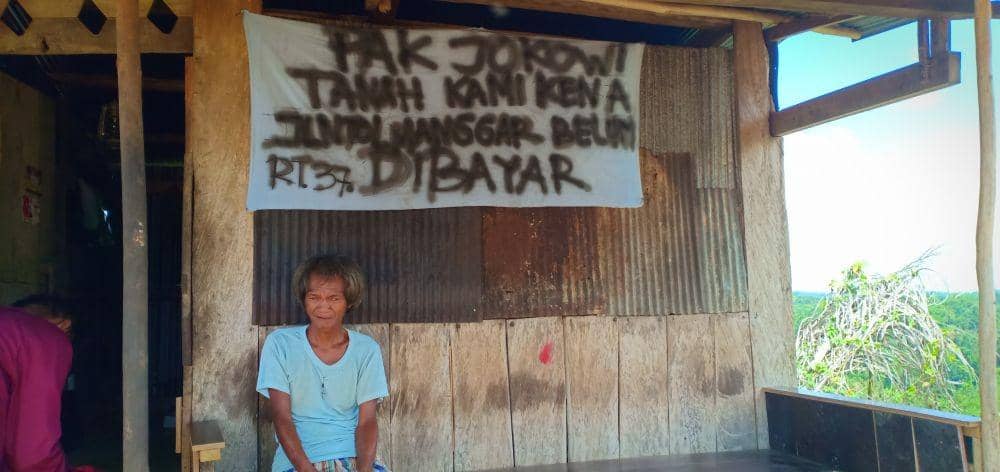 PAK JOKOWI
TANAH KAMI KENA
JLNTOL MANGGAR BELUM
RT.37. DIBAYAR